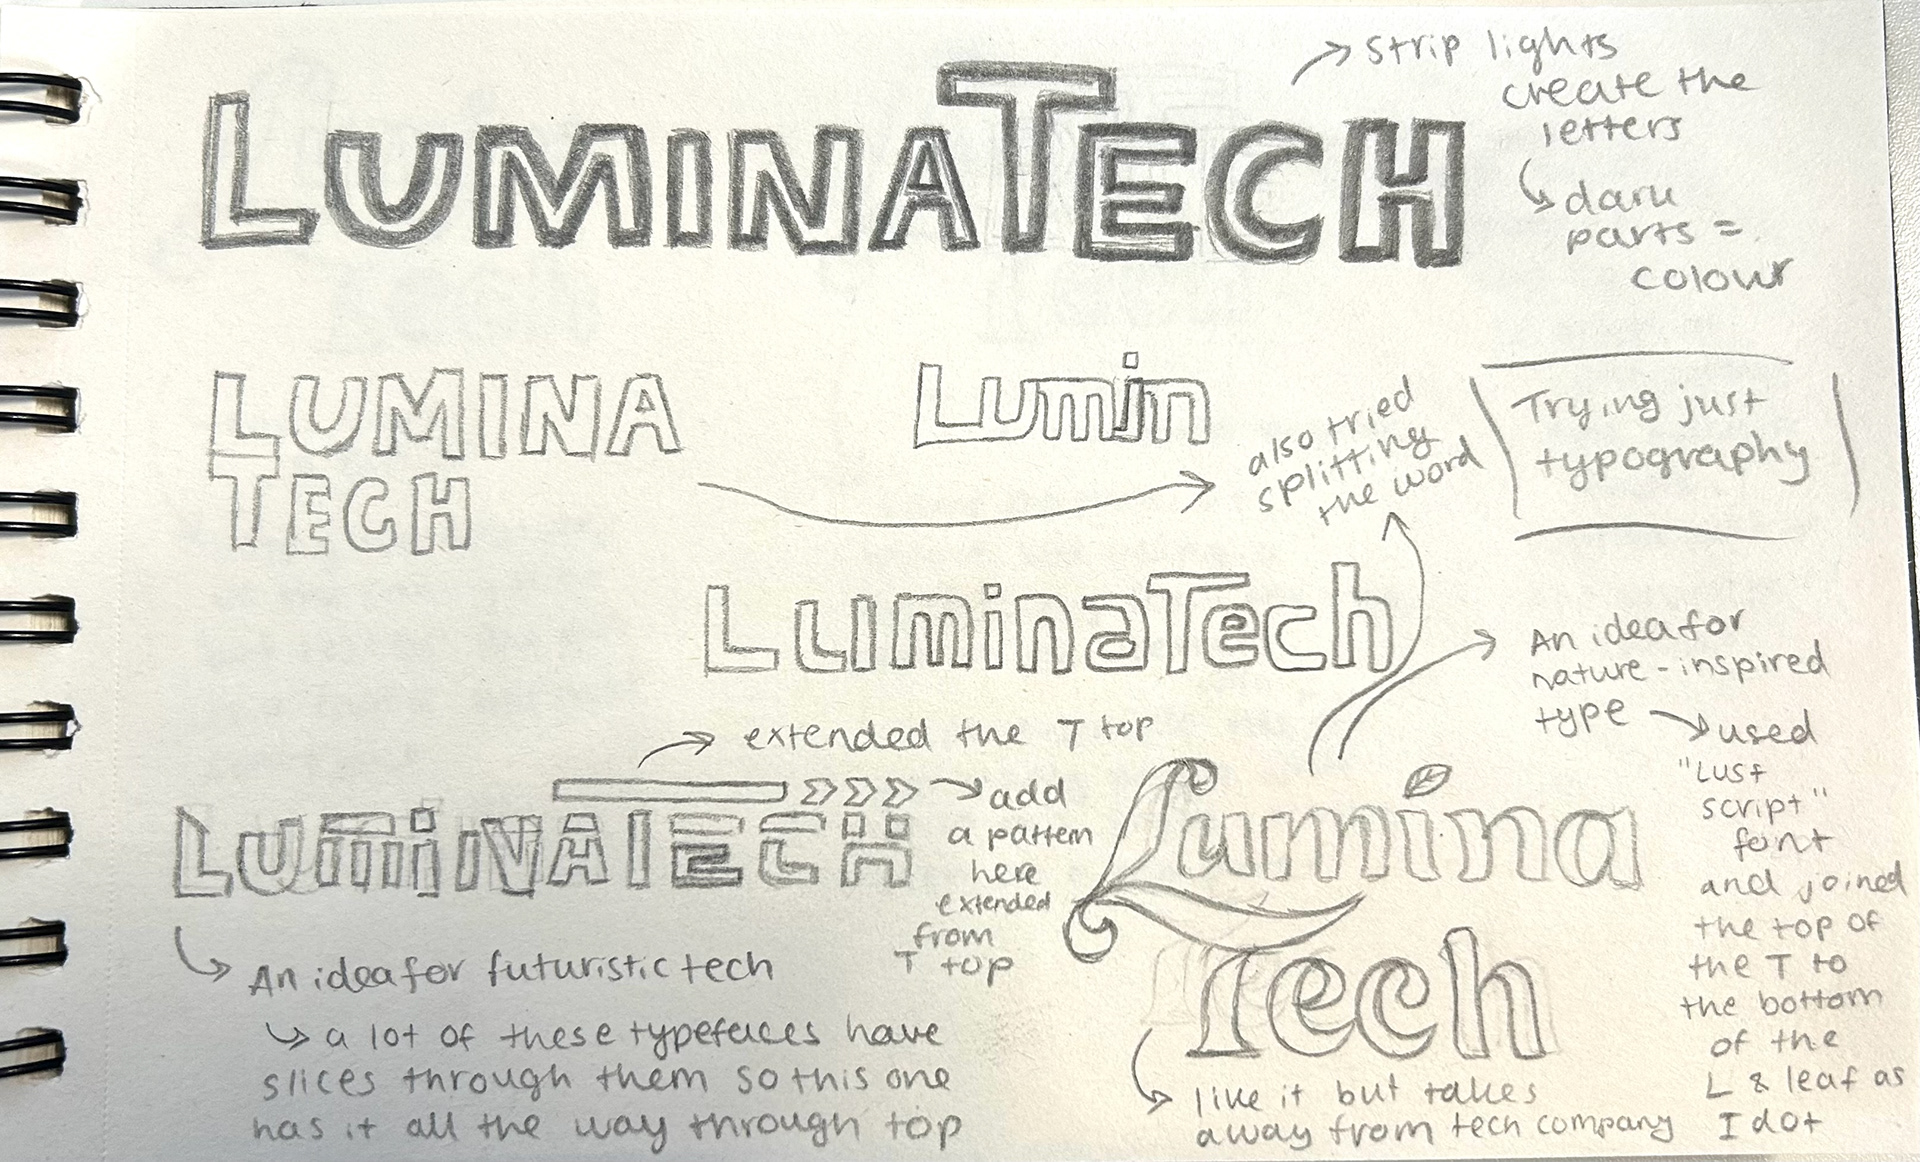 LUMINATECH
strip lights
create the
letters
dark
parts =
colour
LUMINA
TECH
Lumin
also tried
splitting
the word
Trying just
typography
LuminaTech
An idea for
nature-inspired
type
used
"Lust
script"
font
and joined
the top of
the T to
the bottom
of the
L & leaf as
I dot
extended the T top
LUMiNATECH
add
a pattern
here
extended
from
T top
An idea for futuristic tech
a lot of these typefaces have
slices through them so this one
has it all the way through top
Lumina
Tech
like it but takes
away from tech company